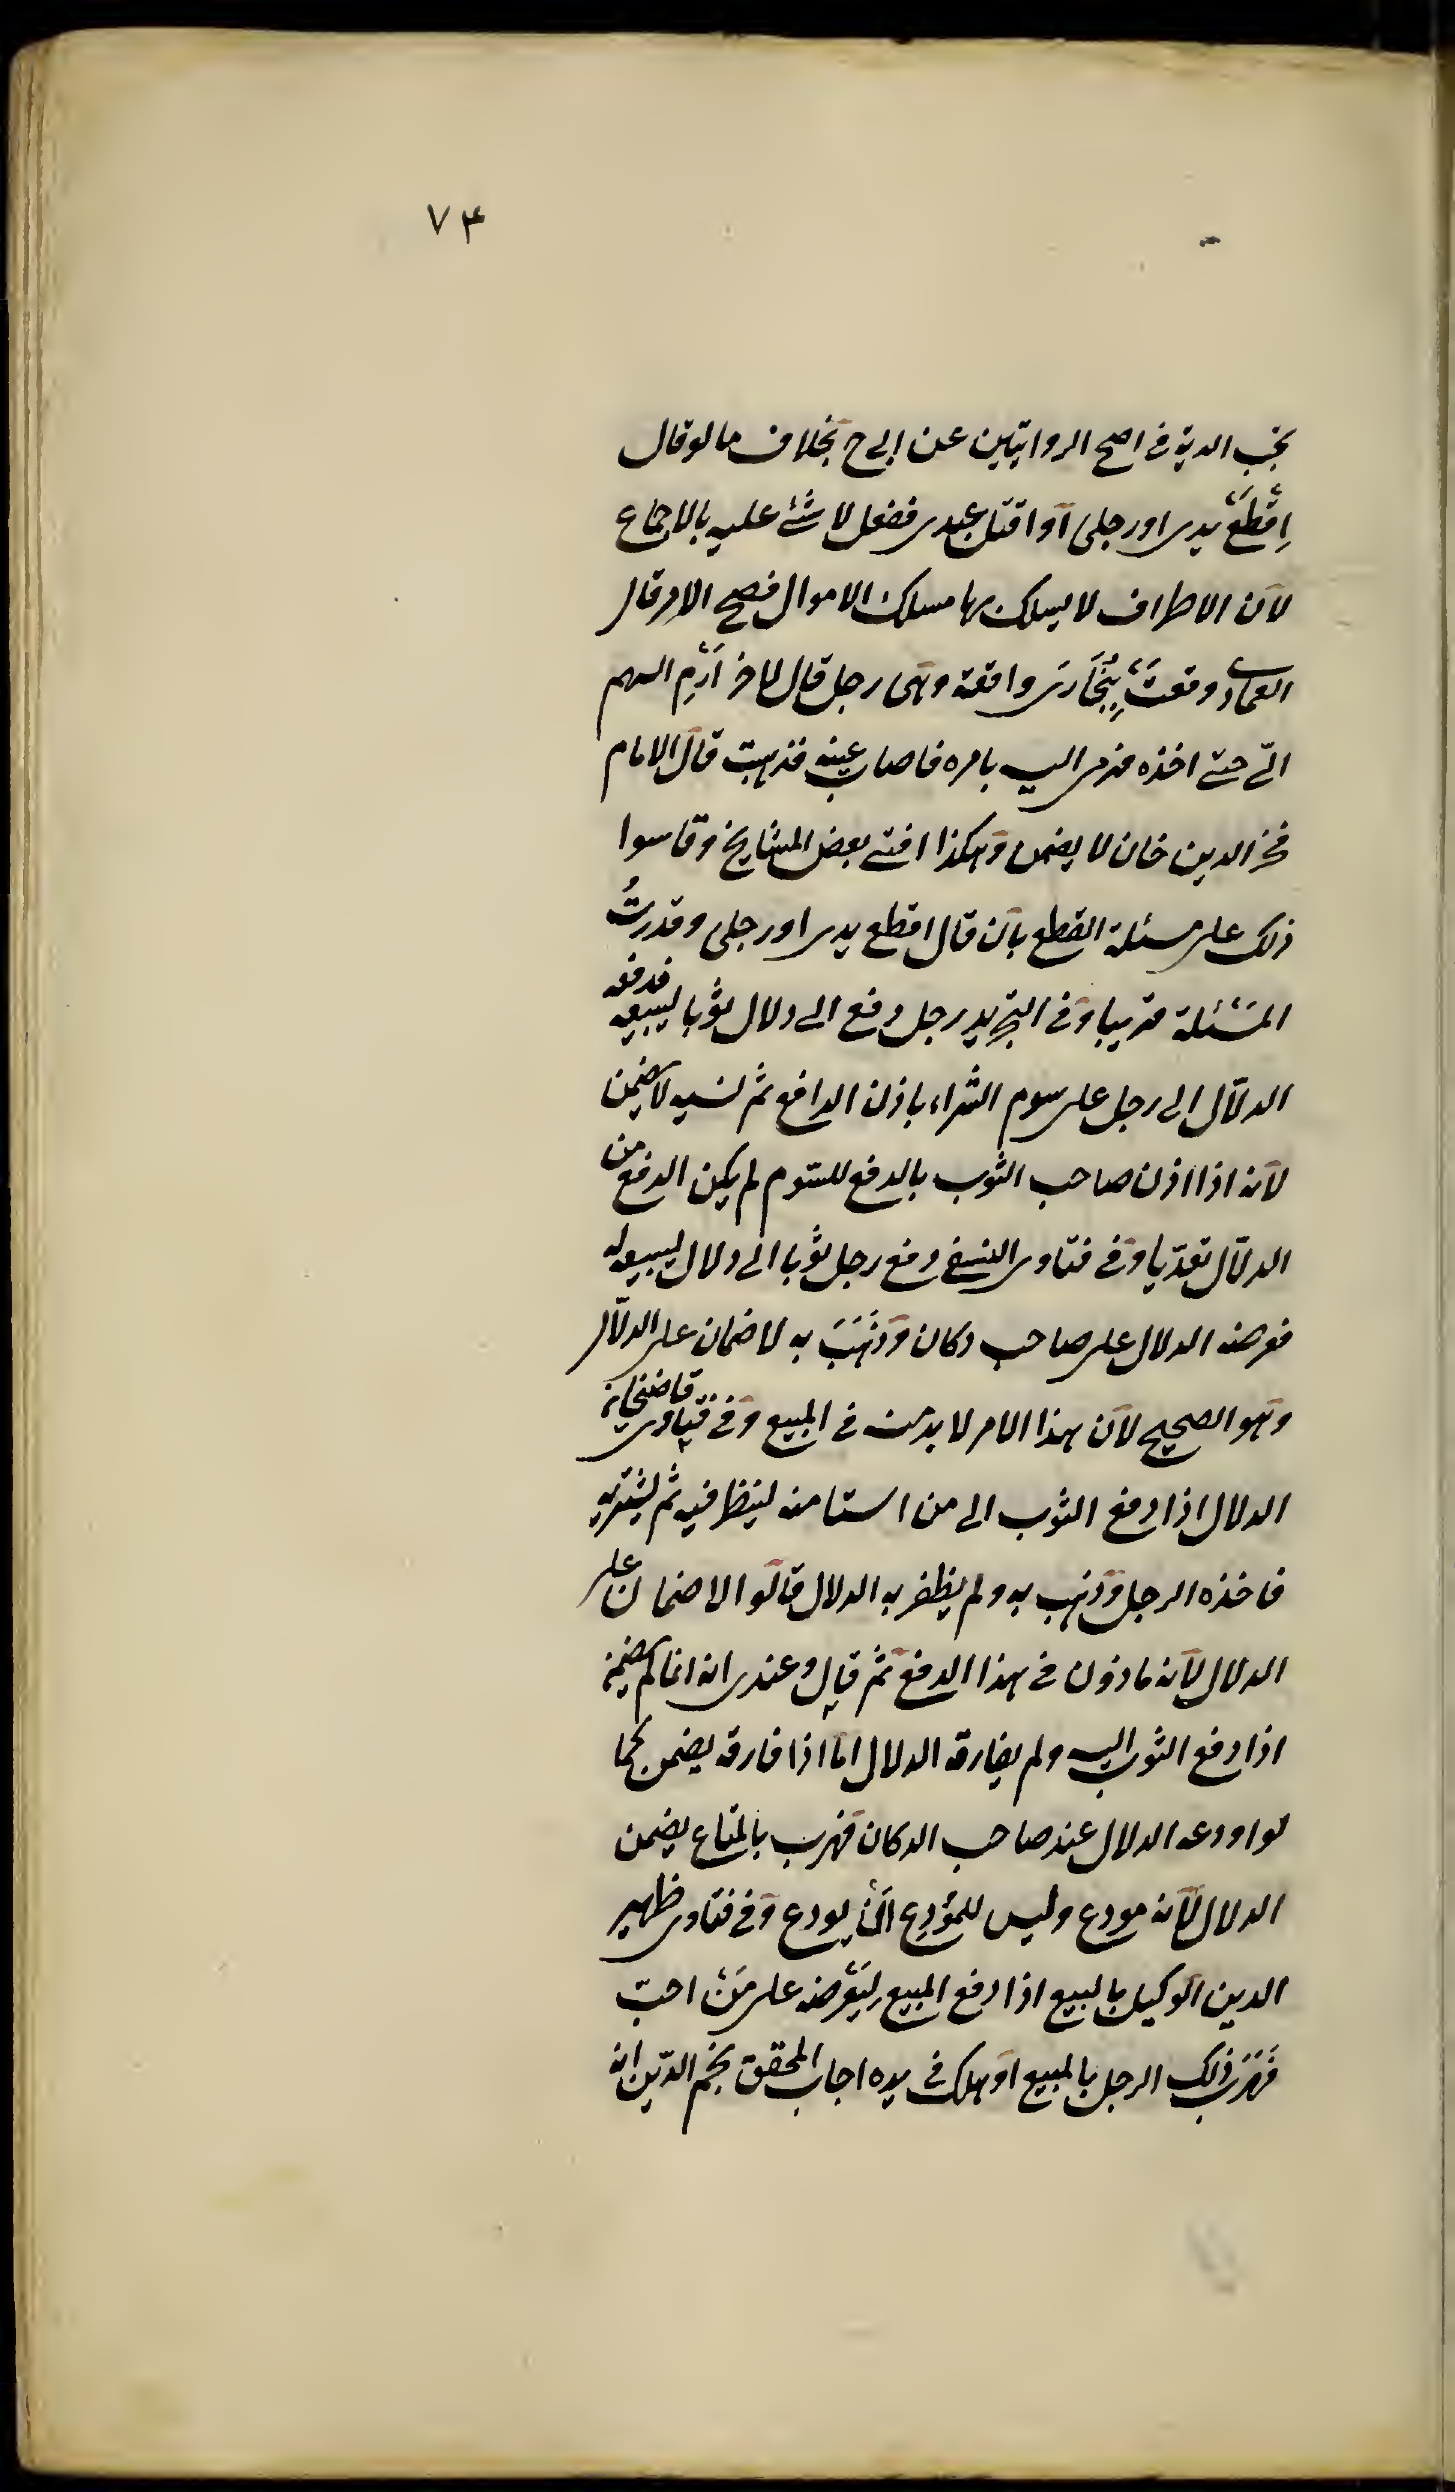 ٧۴
تجب الدية فى اصح الروايتين عن ابى ح بخلاف ما لو قال
اِقْطَعْ يدى او رجلى او اقتل عبدى ففعل لا شئ عليه بالاجماع
لان الاطراف لا يسلك بها مسلك الاموال فصح الامر قال
العمادى وقعتْ بِبُخَارَى واقعة وهى رجل قال لاخر اَرْمِ السهم
الىّ حتى اخذه فرمى اليه بامره فاصاب عينه فذهبت قال الامام
فخر الدين خان لا يضمن وهكذا افتى بعض المشايخ وقاسوا
ذلك على مسئلة القطع بان قال اقطع يدى او رجلى وقد مرّتُ
المسْئلة قريبا وفى التجريد رجل دفع الى دلال ثوبا ليبيعه فدفعه
الدلّال الى رجل على سوم الشراء باذن الدافع ثم نسيه لا يضمن
لانه اذا اذن صاحب الثوب بالدفع للسّوم لم يكن الدفع من
الدلّال تعدّيا وفى فتاوى النسفى دفع رجل ثوبا الى دلال ليبيعه له
فعرضه الدلال على صاحب دكان وذَهَبَ به لا ضمان على الدلّال
وهو الصحيح لان هذا الامر لا بد منه فى المبيع وفى فتاوى قاضيخان
الدلال اذا دفع الثوب الى من استامه لينظر فيه ثم يشتريه
فاخذه الرجل وذهب به ولم يظفر به الدلال قالوا لا ضمان على
الدلال لانه ماذون فى هذا الدفع ثم قال وعندى انه انما لم يضمن
اذا دفع الثوب اليه ولم يفارقه الدلال امّا اذا فارقه يضمن كما
لو اودعه الدلال عند صاحب الدكان فهرب بالمتاع يضمن
الدلال لانه مودع وليس للموْدِع اَنْ يودع وفى فتاوى ظهير
الدين الوكيل بالبيع اذا دفع المبيع لِيَعْرضه على مَنْ احبّ
فَهَرَبَ ذلك الرجل بالمبيع او هلك فى يده اجاب المحقق نجم الدّين انه